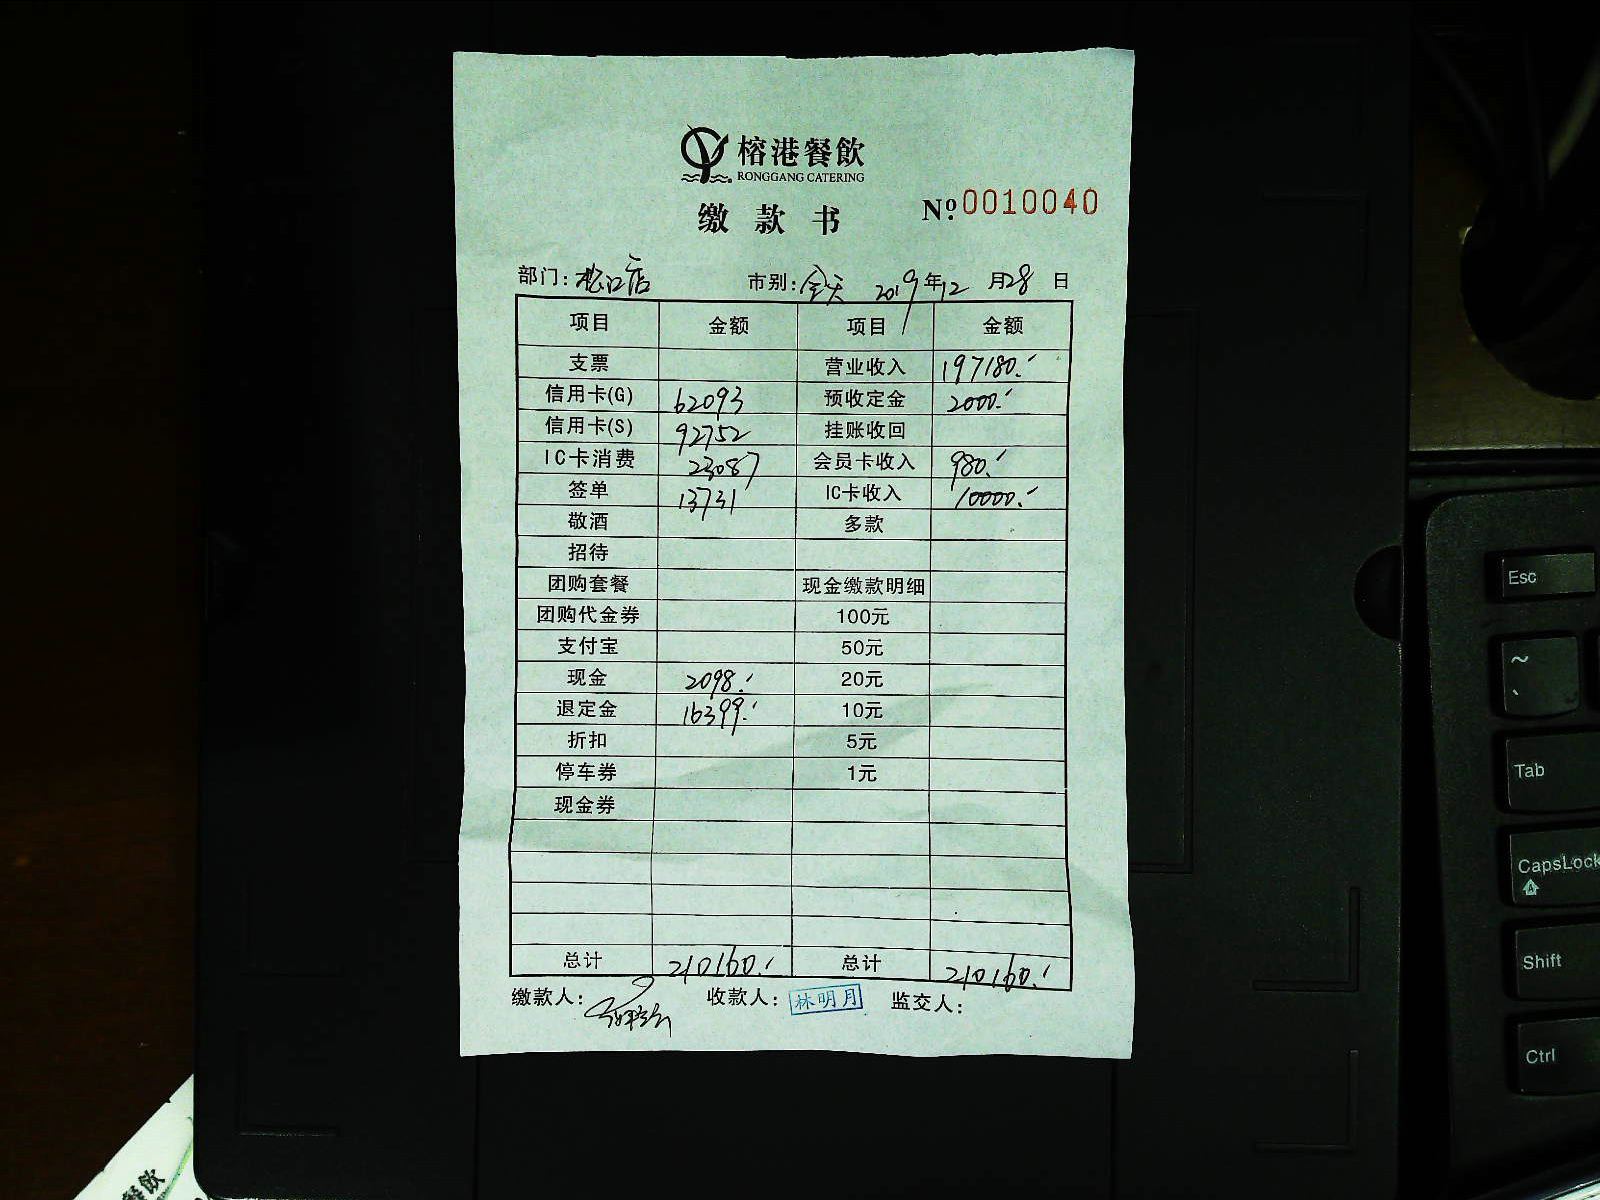 榕港餐飲
RONGGANG CATERING
缴款书 Nº:0010040
部门:松口店 市别:全天 2019年12月28日
项目 金额 项目 金额
支票 营业收入 197180.-
信用卡(G) 62093 预收定金 2000.-
信用卡(S) 92752 挂账收回
IC卡消费 23087 会员卡收入 980.-
签单 13731 IC卡收入 10000.-
敬酒 多款
招待
团购套餐 现金缴款明细
团购代金券 100元
支付宝 50元
现金 2098.- 20元
退定金 16399.- 10元
折扣 5元
停车券 1元
现金券
总计 210160.- 总计 210160.-
缴款人: 收款人:林明月 监交人:
Esc
~
、
Tab
CapsLock
A
Shift
Ctrl
餐飲